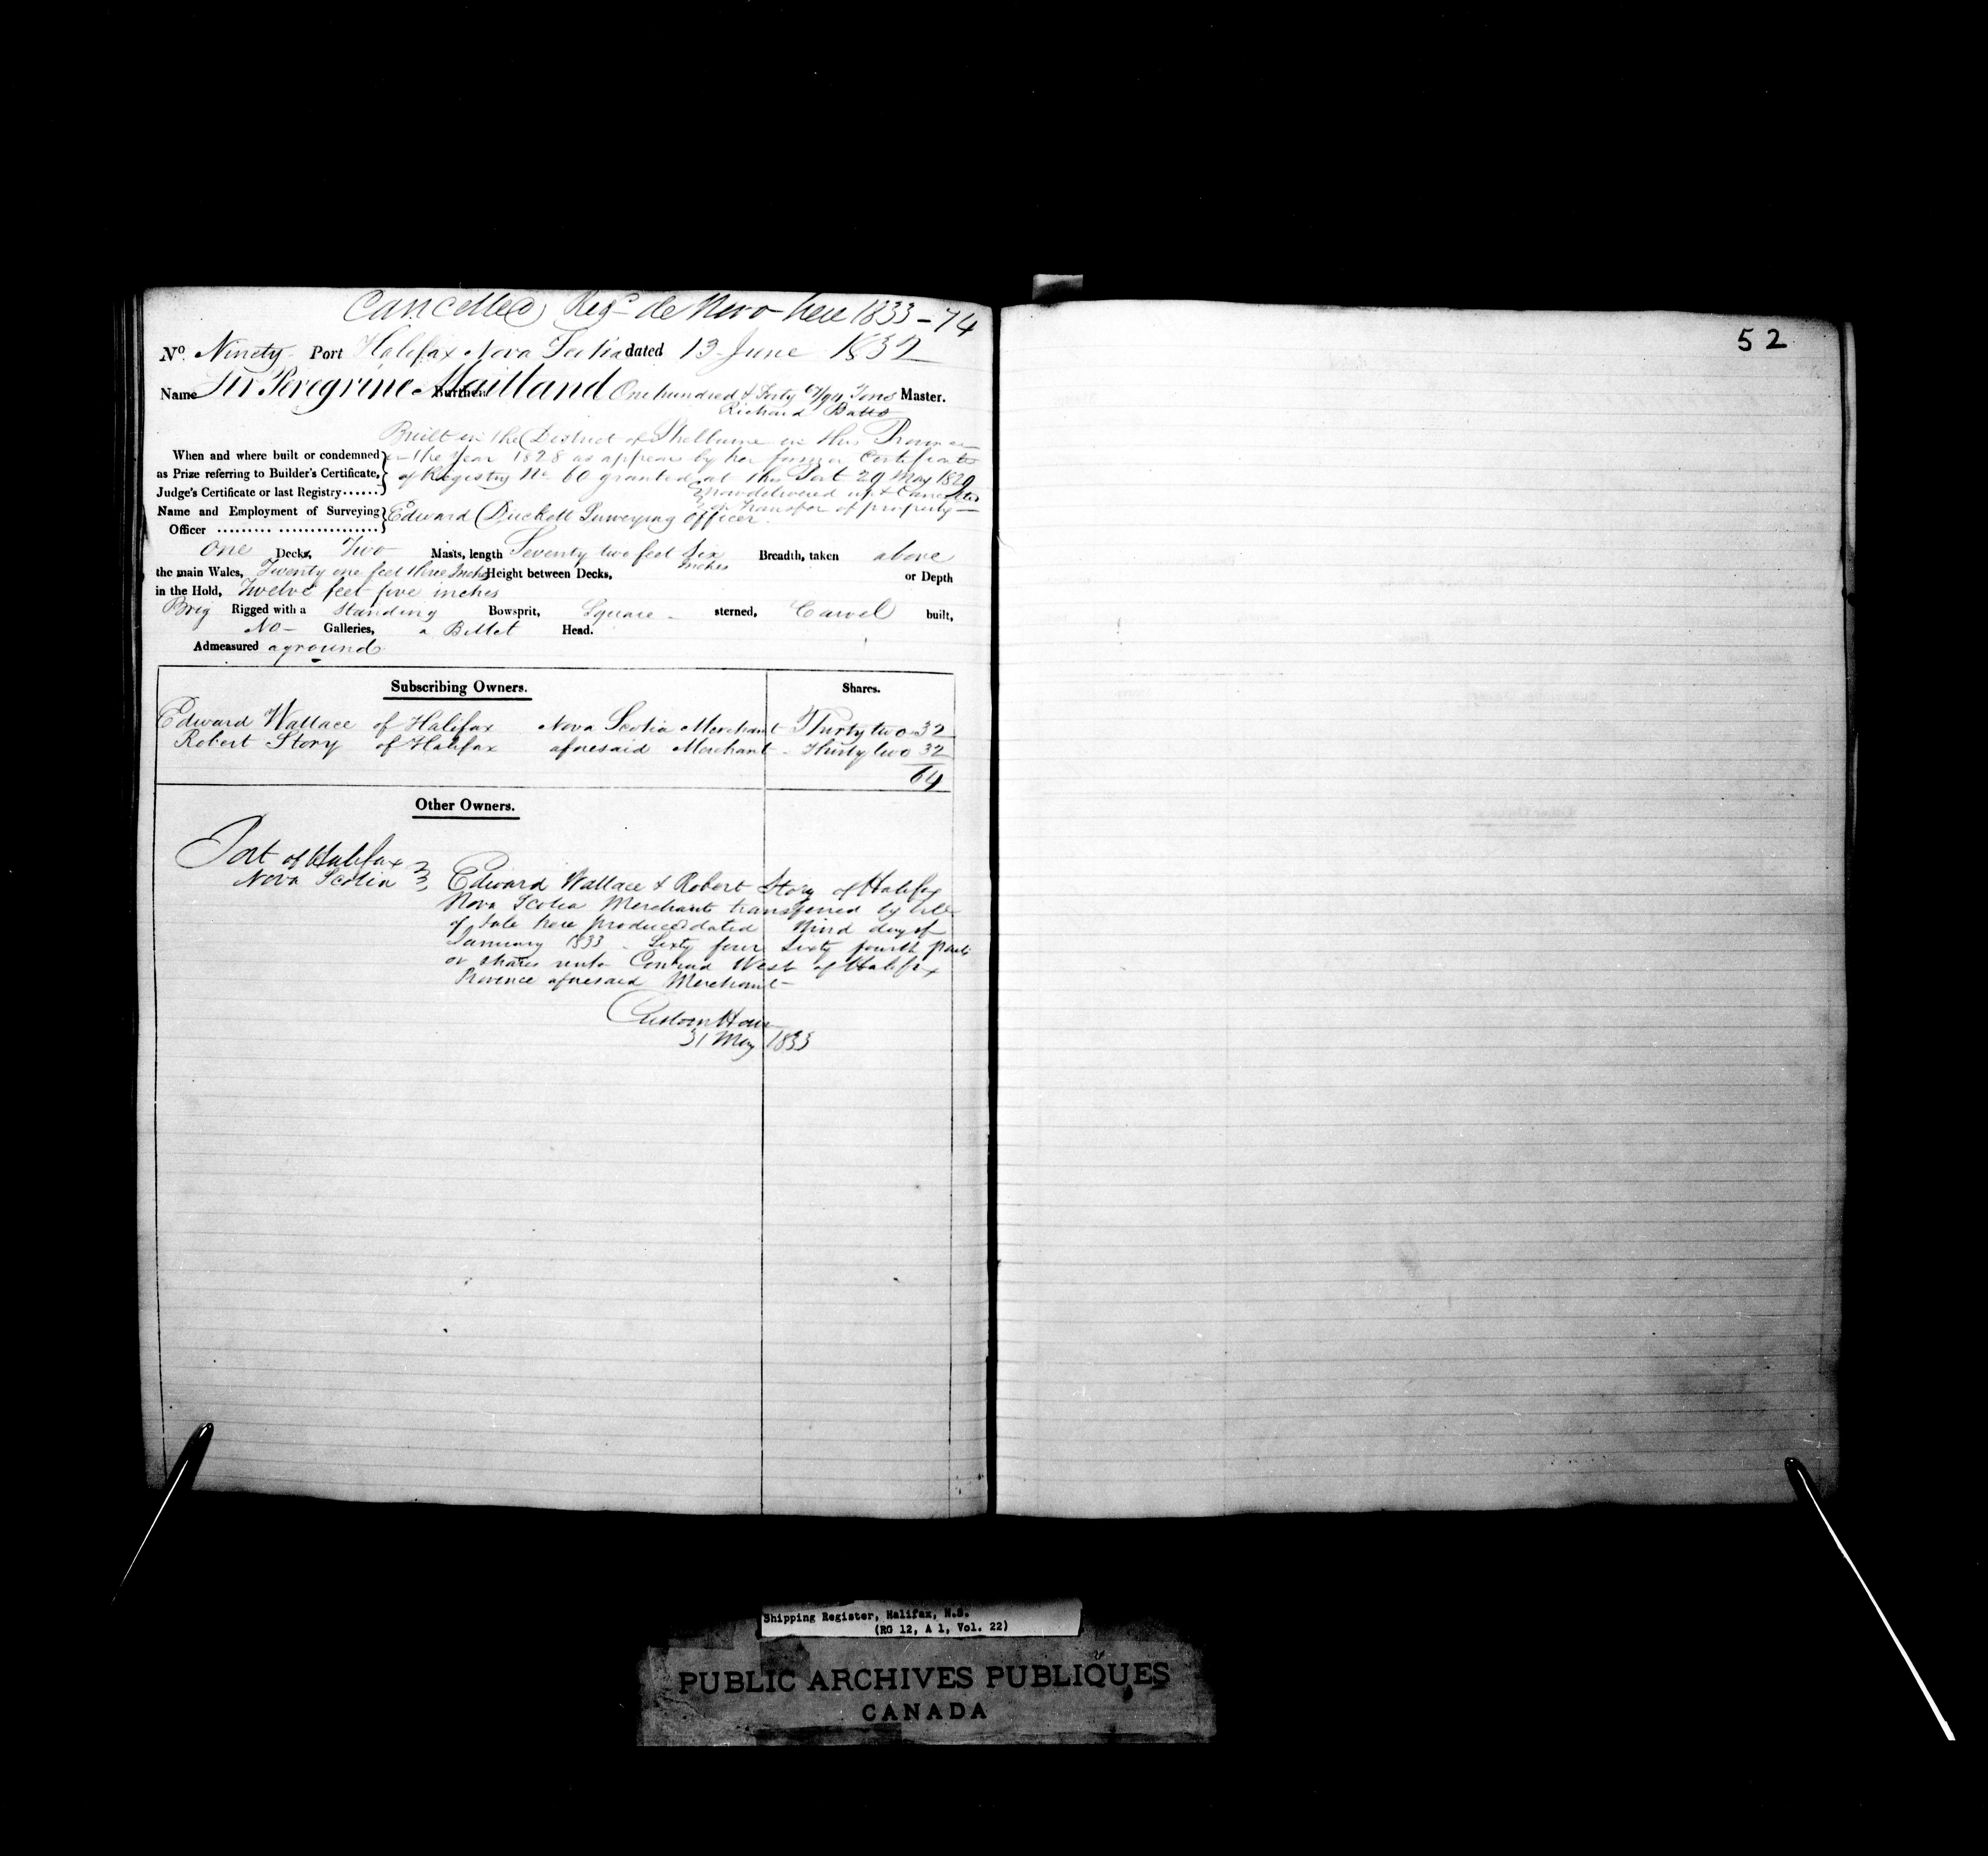 Cancelled Regd de Novo here 1833-74
52
No. Ninety Port Halifax Nova Scotia dated 13 June 1832
Name Sir Peregrine Maitland Burthen One hundred & Forty 67/94 Tons Master.
Richard Batts
Built in the District of Shelburne in this Province
When and where built or condemned
as Prize referring to Builder's Certificate,
Judge's Certificate or last Registry......
in the Year 1828 as appears by her former Certificate
of Registry No 60 granted at this Port 29 May 1829
now delivered up & Cancelled
on transfer of property
Name and Employment of Surveying
Officer
Edward Duckett Surveying Officer
One Decks, Two Masts, length Seventy two feet Six Inches Breadth, taken above
the main Wales, Twenty one feet three Inches Height between Decks, or Depth
in the Hold, Twelve feet five inches
Brig Rigged with a Standing Bowsprit, Square sterned, Carvel built,
No Galleries, a Billet Head.
Admeasured aground
Subscribing Owners. Shares.
Edward Wallace of Halifax Nova Scotia Merchant Thirty two 32
Robert Story of Halifax aforesaid Merchant Thirty two 32
64
Other Owners.
Port of Halifax
Nova Scotia
Edward Wallace & Robert Story of Halifax
Nova Scotia Merchants transferred by bill
of Sale here produced dated day of
January 1833 Sixty four Sixty fourth parts
or shares unto Conrad West of Halifax
Province aforesaid Merchant
Custom House
31 May 1833
Shipping Register, Halifax, N.S.
(RG 12, A 1, Vol. 22)
PUBLIC ARCHIVES PUBLIQUES
CANADA